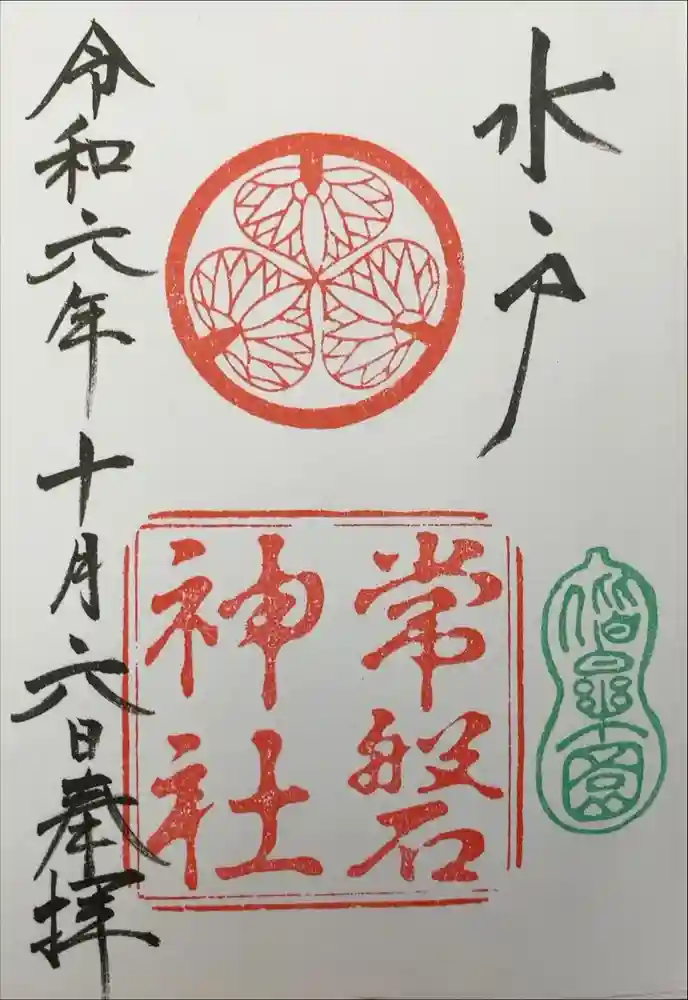 水戸
偕楽園
常磐
神社
令和六年十月六日奉拝